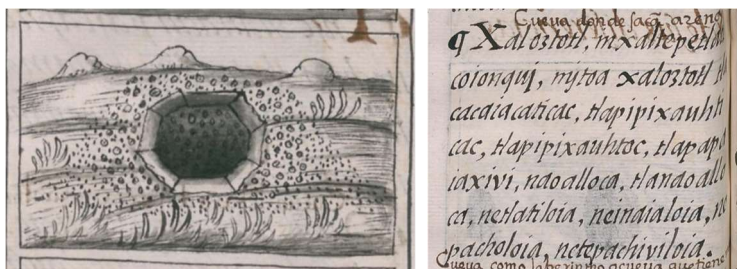 Cueva donde sacã arena
¶ Xaloztotl, in xaltepetla
coionqui, njtoa xaloztotl tla
cacaiacaticac, tlapipixauhti
cac, tlapipixauhtoc, tlapapa
iaxivi, naoalloca, tlanaoallo
ca, netlatiloia, neinaialoia, ne
pacholoia, netepachiviloia.
Cueva como laberintho, o cueva que tiene